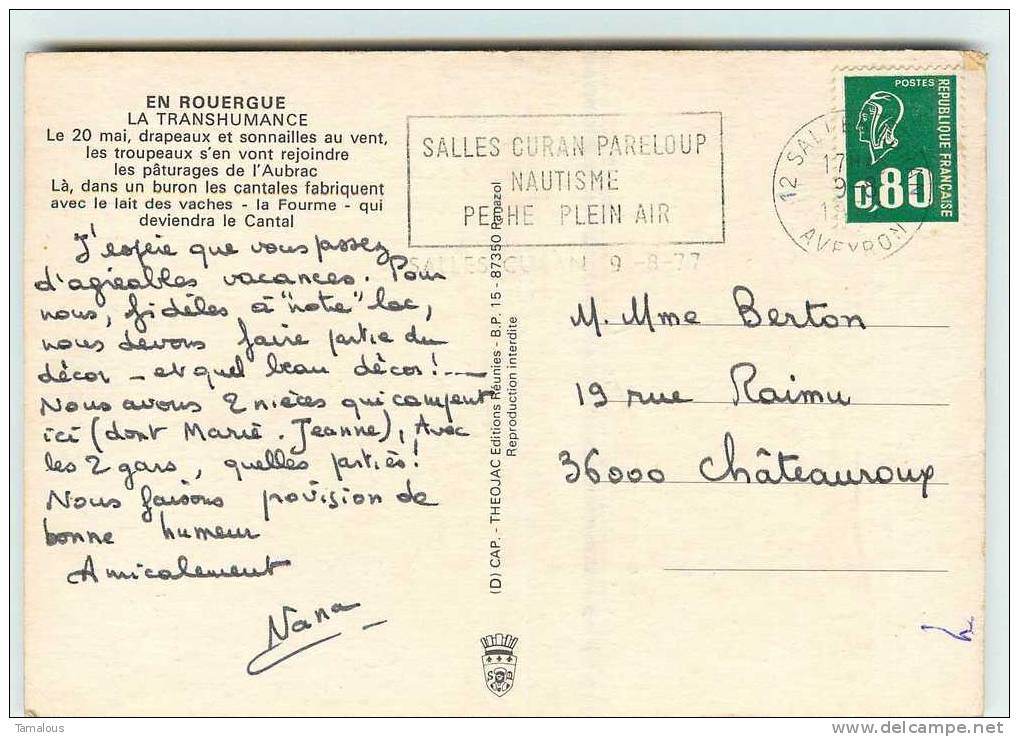 EN ROUERGUE
LA TRANSHUMANCE
Le 20 mai, drapeaux et sonnailles au vent,
les troupeaux s'en vont rejoindre
les pâturages de l'Aubrac
Là, dans un buron les cantales fabriquent
avec le lait des vaches - la Fourme - qui
deviendra le Cantal
J'espère que vous passez
d'agréables vacances. Pour
nous, fidèles à "note" lac,
nous devons faire partie du
décor - et quel beau décor!
Nous avons 2 nièces qui campent
ici (dont Marie-Jeanne), Avec
les 2 gars, quelles parties!
Nous faisons provision de
bonne humeur
Amicalement
Nana
SALLES CURAN PARELOUP
NAUTISME
PECHE PLEIN AIR
SALLES-CURAN 9-8-77
(D) CAP. - THEOJAC Editions Réunies - B.P. 15 - 87350 Panazol
Reproduction interdite
12 SALLES
17
9
AVEYRON
POSTES
REPUBLIQUE FRANÇAISE
0,80
M. Mme Berton
19 rue Raimu
36000 Châteauroux
S B
Tamalous
http://www.delcampe.net